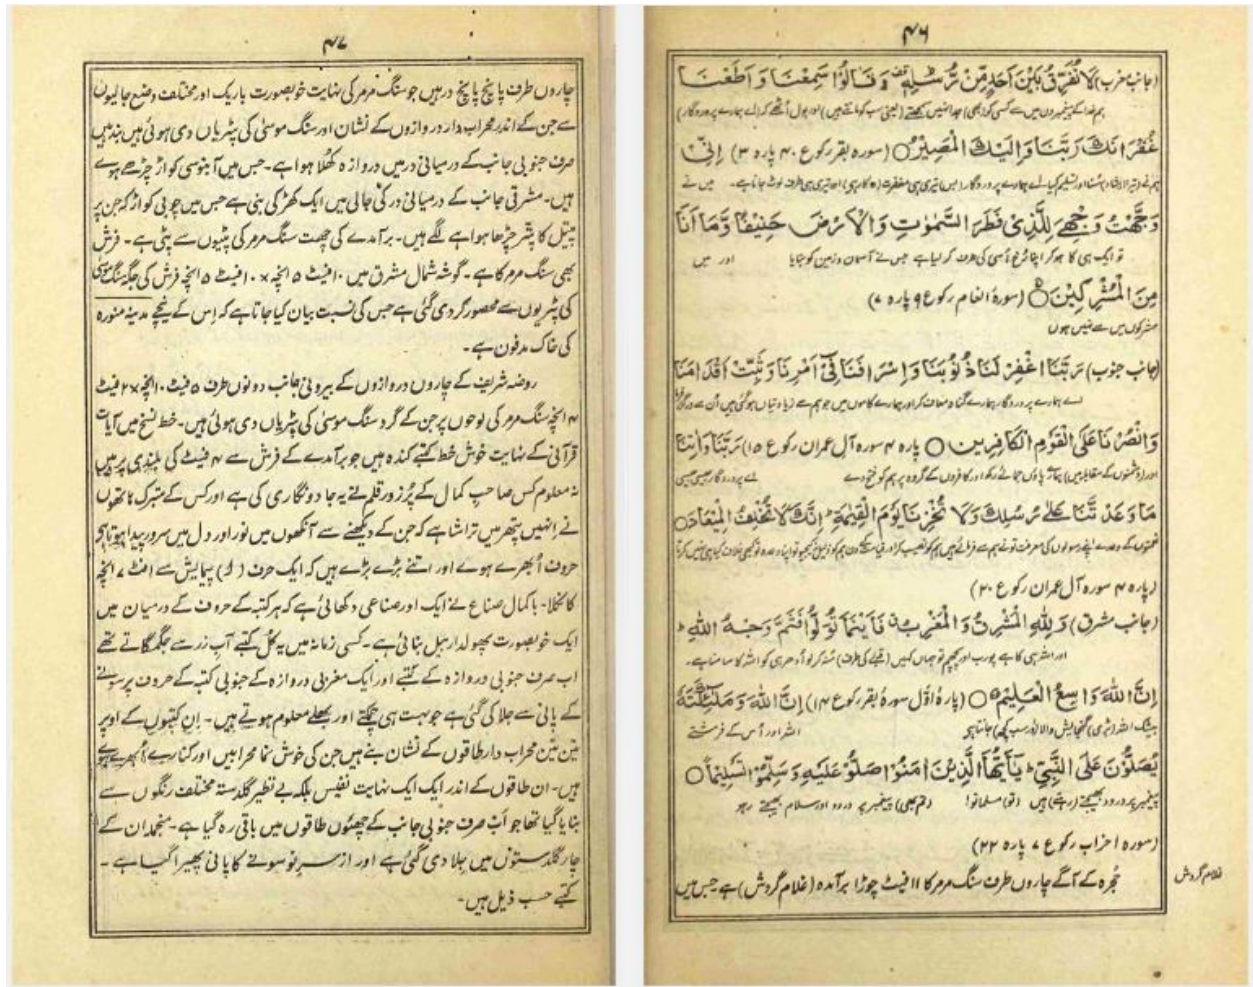 ۴۶
(جانب غرب) لَا نُفَرِّقُ بَيْنَ اَحَدٍ مِّنْ رُّسُلِهٖ وَقَالُوْا سَمِعْنَا وَاَطَعْنَا
ہم خدا کے پیغمبروں میں سے کسی کو (بھی) جدا نہیں سمجھتے (یعنی سب کو مانتے ہیں) اور بول اُٹھے کہ (اے ہمارے پروردگار)
غُفْرَانَكَ رَبَّنَا وَاِلَيْكَ الْمَصِيْرُ ○ (سورہ بقر رکوع ۴۰ پارہ ۳) اِنِّیْ
ہم نے (تیرا ارشاد) سُنا اور تسلیم کیا۔ اے ہمارے پروردگار (بس) تیری ہی مغفرت (درکار ہے) اور تیری ہی طرف لوٹ جانا ہے۔ میں نے
وَجَّهْتُ وَجْهِيَ لِلَّذِيْ فَطَرَ السَّمٰوٰتِ وَالْاَرْضَ حَنِيْفًا وَّمَا اَنَا
تو ایک ہی کا ہو کر اپنا رُخ اُسی کی طرف کر لیا ہے جس نے آسمان و زمین کو بنایا اور میں
مِنَ الْمُشْرِكِيْنَ ○ (سورۂ انعام رکوع ۹ پارہ ۷)
مشرکوں میں سے نہیں ہوں
(جانب جنوب) رَبَّنَا اغْفِرْ لَنَا ذُنُوْبَنَا وَاِسْرَافَنَا فِيْٓ اَمْرِنَا وَثَبِّتْ اَقْدَامَنَا
اے ہمارے پروردگار ہمارے گناہ معاف کر اور ہمارے کاموں میں جو ہم سے زیادتیاں ہوگئی ہیں اُن سے درگزر
وَانْصُرْنَا عَلَى الْقَوْمِ الْكَافِرِيْن ○ پارہ ۴ سورہ آل عمران رکوع ۱۵) رَبَّنَا وَاٰتِنَا
اور (دشمنوں کے مقابلہ میں) ہمارے پاؤں جمائے رکھ اور کافروں کے گروہ پر ہم کو فتح دے اے پروردگار جیسی جیسی
مَا وَعَدْتَّنَا عَلٰى رُسُلِكَ وَلَا تُخْزِنَا يَوْمَ الْقِيٰمَةِ اِنَّكَ لَا تُخْلِفُ الْمِيْعَادَ ○
نعمتوں کے وعدے اپنے رسولوں کی معرفت تو نے ہم سے فرمائے ہیں ہم کو نصیب کر اور قیامت کے دن ہم کو ذلیل نہ کیجیو تو اپنے وعدہ تو کبھی خلاف کیا ہی نہیں کرتا
(پارہ ۴ سورہ آل عمران رکوع ۲۰)
(جانب مشرق) وَلِلّٰهِ الْمَشْرِقُ وَالْمَغْرِبُ فَاَيْنَمَا تُوَلُّوْا فَثَمَّ وَجْهُ اللّٰهِ
اور اللہ ہی کا ہے پورب اور پچھم تو جہاں کہیں (قبلے کی طرف) مُنہ کر لو اُدھر ہی کو اللہ کا سامنا ہے۔
اِنَّ اللّٰهَ وَاسِعٌ الْعَلِيْم ○ (پارہ اوّل سورہ بقر رکوع ۱۴) اِنَّ اللّٰهَ وَمَلٰٓئِكَتَهٗ
بیشک اللہ (بڑی) گنجائش والا اور سب کچھ جانتا ہے اللہ اور اُس کے فرشتے
يُصَلُّوْنَ عَلَى النَّبِيِّ يَآ اَيُّهَا الَّذِيْنَ اٰمَنُوْا صَلُّوْا عَلَيْهِ وَسَلِّمُوْا تَسْلِيْمًا ○
پیغمبر پر درود بھیجتے (رہتے) ہیں (تو) مسلمانو! (تم بھی) پیغمبر پر درود اور سلام بھیجتے رہو
(سورہ احزاب رکوع ۷ پارہ ۲۲)
حُجرہ کے آگے چاروں طرف سنگ مرمر کا ۱۱ فیٹ چوڑا برآمدہ (غلام گردش) ہے جس میں
غلام گردش
۴۷
چاروں طرف پانچ پانچ در ہیں جو سنگ مرمر کی نہایت خوبصورت باریک اور مختلف وضع جالیوں
سے جن کے اندر محراب دار دروازوں کے نشان اور سنگ موسیٰ کی پٹریاں دی ہوئی ہیں بند ہیں
صرف جنوبی جانب کے درمیانی در میں دروازہ کھُلا ہوا ہے۔ جس میں آبنوسی کواڑ چڑھے ہوئے
ہیں۔ مشرقی جانب کے درمیانی در کی جالی میں ایک کھڑکی بنی ہے جس میں چوبی کواڑ کہ جن پر
پیتل کا پتر چڑھا ہوا ہے لگے ہیں۔ برآمدے کی چھت سنگ مرمر کی پٹیوں سے پٹی ہے۔ فرش
بھی سنگ مرمر کا ہے۔ گوشہ شمال مشرق میں ۱۰ فیٹ ۵ انچہ × ۱۰ فیٹ ۵ انچہ فرش کی جگہ سنگ موسیٰ
کی پٹریوں سے محصور کر دی گئی ہے جس کی نسبت بیان کیا جاتا ہے کہ اِس کے نیچے مدینہ منورہ
کی خاک مدفون ہے۔
روضہ شریف کے چاروں دروازوں کے بیرونی جانب دونوں طرف ۵ فیٹ ۱۰ انچہ × ۲ فیٹ
۴ انچہ سنگ مرمر کی لوحوں پر جن کے گرد سنگ موسیٰ کی پٹریاں دی ہوئی ہیں۔ خط نسخ میں آیات
قرآنی کے نہایت خوش خط کتبے کندہ ہیں جو برآمدے کے فرش سے ۴ فیٹ کی بلندی پر ہیں
نہ معلوم کس صاحب کمال کے پُرزور قلم نے یہ جادو نگاری کی ہے اور کس کے متبرک ہاتھوں
نے انہیں پتھر میں تراشا ہے کہ جن کے دیکھنے سے آنکھوں میں نور اور دل میں سرور پیدا ہوتا ہے
حروف اُبھرے ہوے اور اتنے بڑے بڑے ہیں کہ ایک حرف (ل) پیمایش سے ۱ فٹ ۷ انچہ
کا نکلا۔ باکمال صناع نے ایک اور صناعی دکھائی ہے کہ ہر کتبہ کے حروف کے درمیان میں
ایک خوبصورت پھولدار بیل بنائی ہے۔ کسی زمانہ میں یہ کل کتبے آب زر سے جگمگاتے تھے
اب صرف جنوبی دروازہ کے کتبے اور ایک مغربی دروازہ کے جنوبی کتبہ کے حروف پر سونے
کے پانی سے جلا کی گئی ہے جو بہت ہی چمکتے اور بھلے معلوم ہوتے ہیں۔ اِن کتبوں کے اوپر
تین تین محراب دار طاقوں کے نشان بنے ہیں جن کی خوش نما محرابیں اور کنارے اُبھرے ہوے
ہیں۔ ان طاقوں کے اندر ایک ایک نہایت نفیس بلکہ بے نظیر گلدستہ مختلف رنگوں سے
بنایا گیا تھا جو اَب صرف جنوبی جانب کے چھئوں طاقوں میں باقی رہ گیا ہے۔ منجملہ ان کے
چار گلدستوں میں جلا دی گئی ہے اور از سر نو سونے کا پانی پھیرا گیا ہے۔
کتبے حسب ذیل ہیں۔